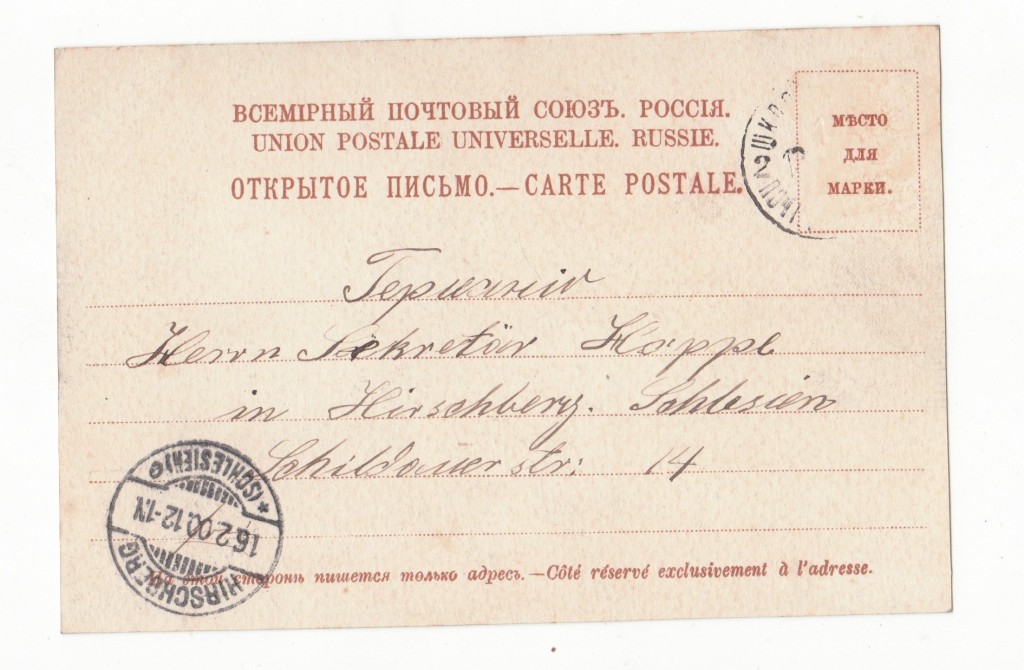 ВСЕМІРНЫЙ ПОЧТОВЫЙ СОЮЗЪ. РОССІЯ.
UNION POSTALE UNIVERSELLE. RUSSIE.
ОТКРЫТОЕ ПИСЬМО.—CARTE POSTALE.
МѢСТО
ДЛЯ
МАРКИ.
Германію
Herrn Sekretär Hoppe
in Hirschberg. Schlesien
Schildauer str: 14
HIRSCHBERG
16.2.00.12-1N
*(SCHLESIEN)
На этой сторонѣ пишется только адресъ.—Côté réservé exclusivement à l'adresse.